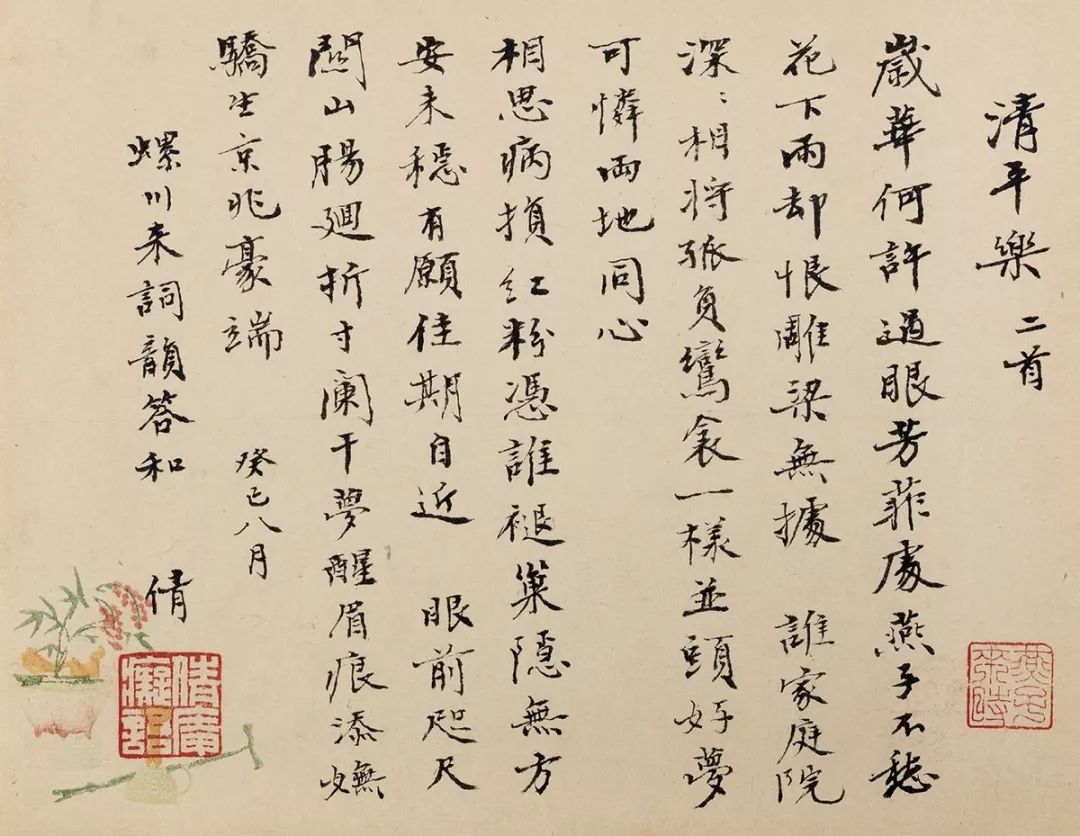 清平樂 二首
歲華何許過眼芳菲處燕子不愁
花下雨却恨雕梁無據 誰家庭院
深〻相將孤負鸞衾一樣並頭好夢
可憐兩地同心
相思病損紅粉憑誰褪巢隱無方
安未穩有願佳期自近 眼前咫尺
關山腸迴折寸闌干夢醒眉痕添嫵
驕生京兆豪端 癸巳八月
螺川来詞韻答和 倩
倩庵癡語